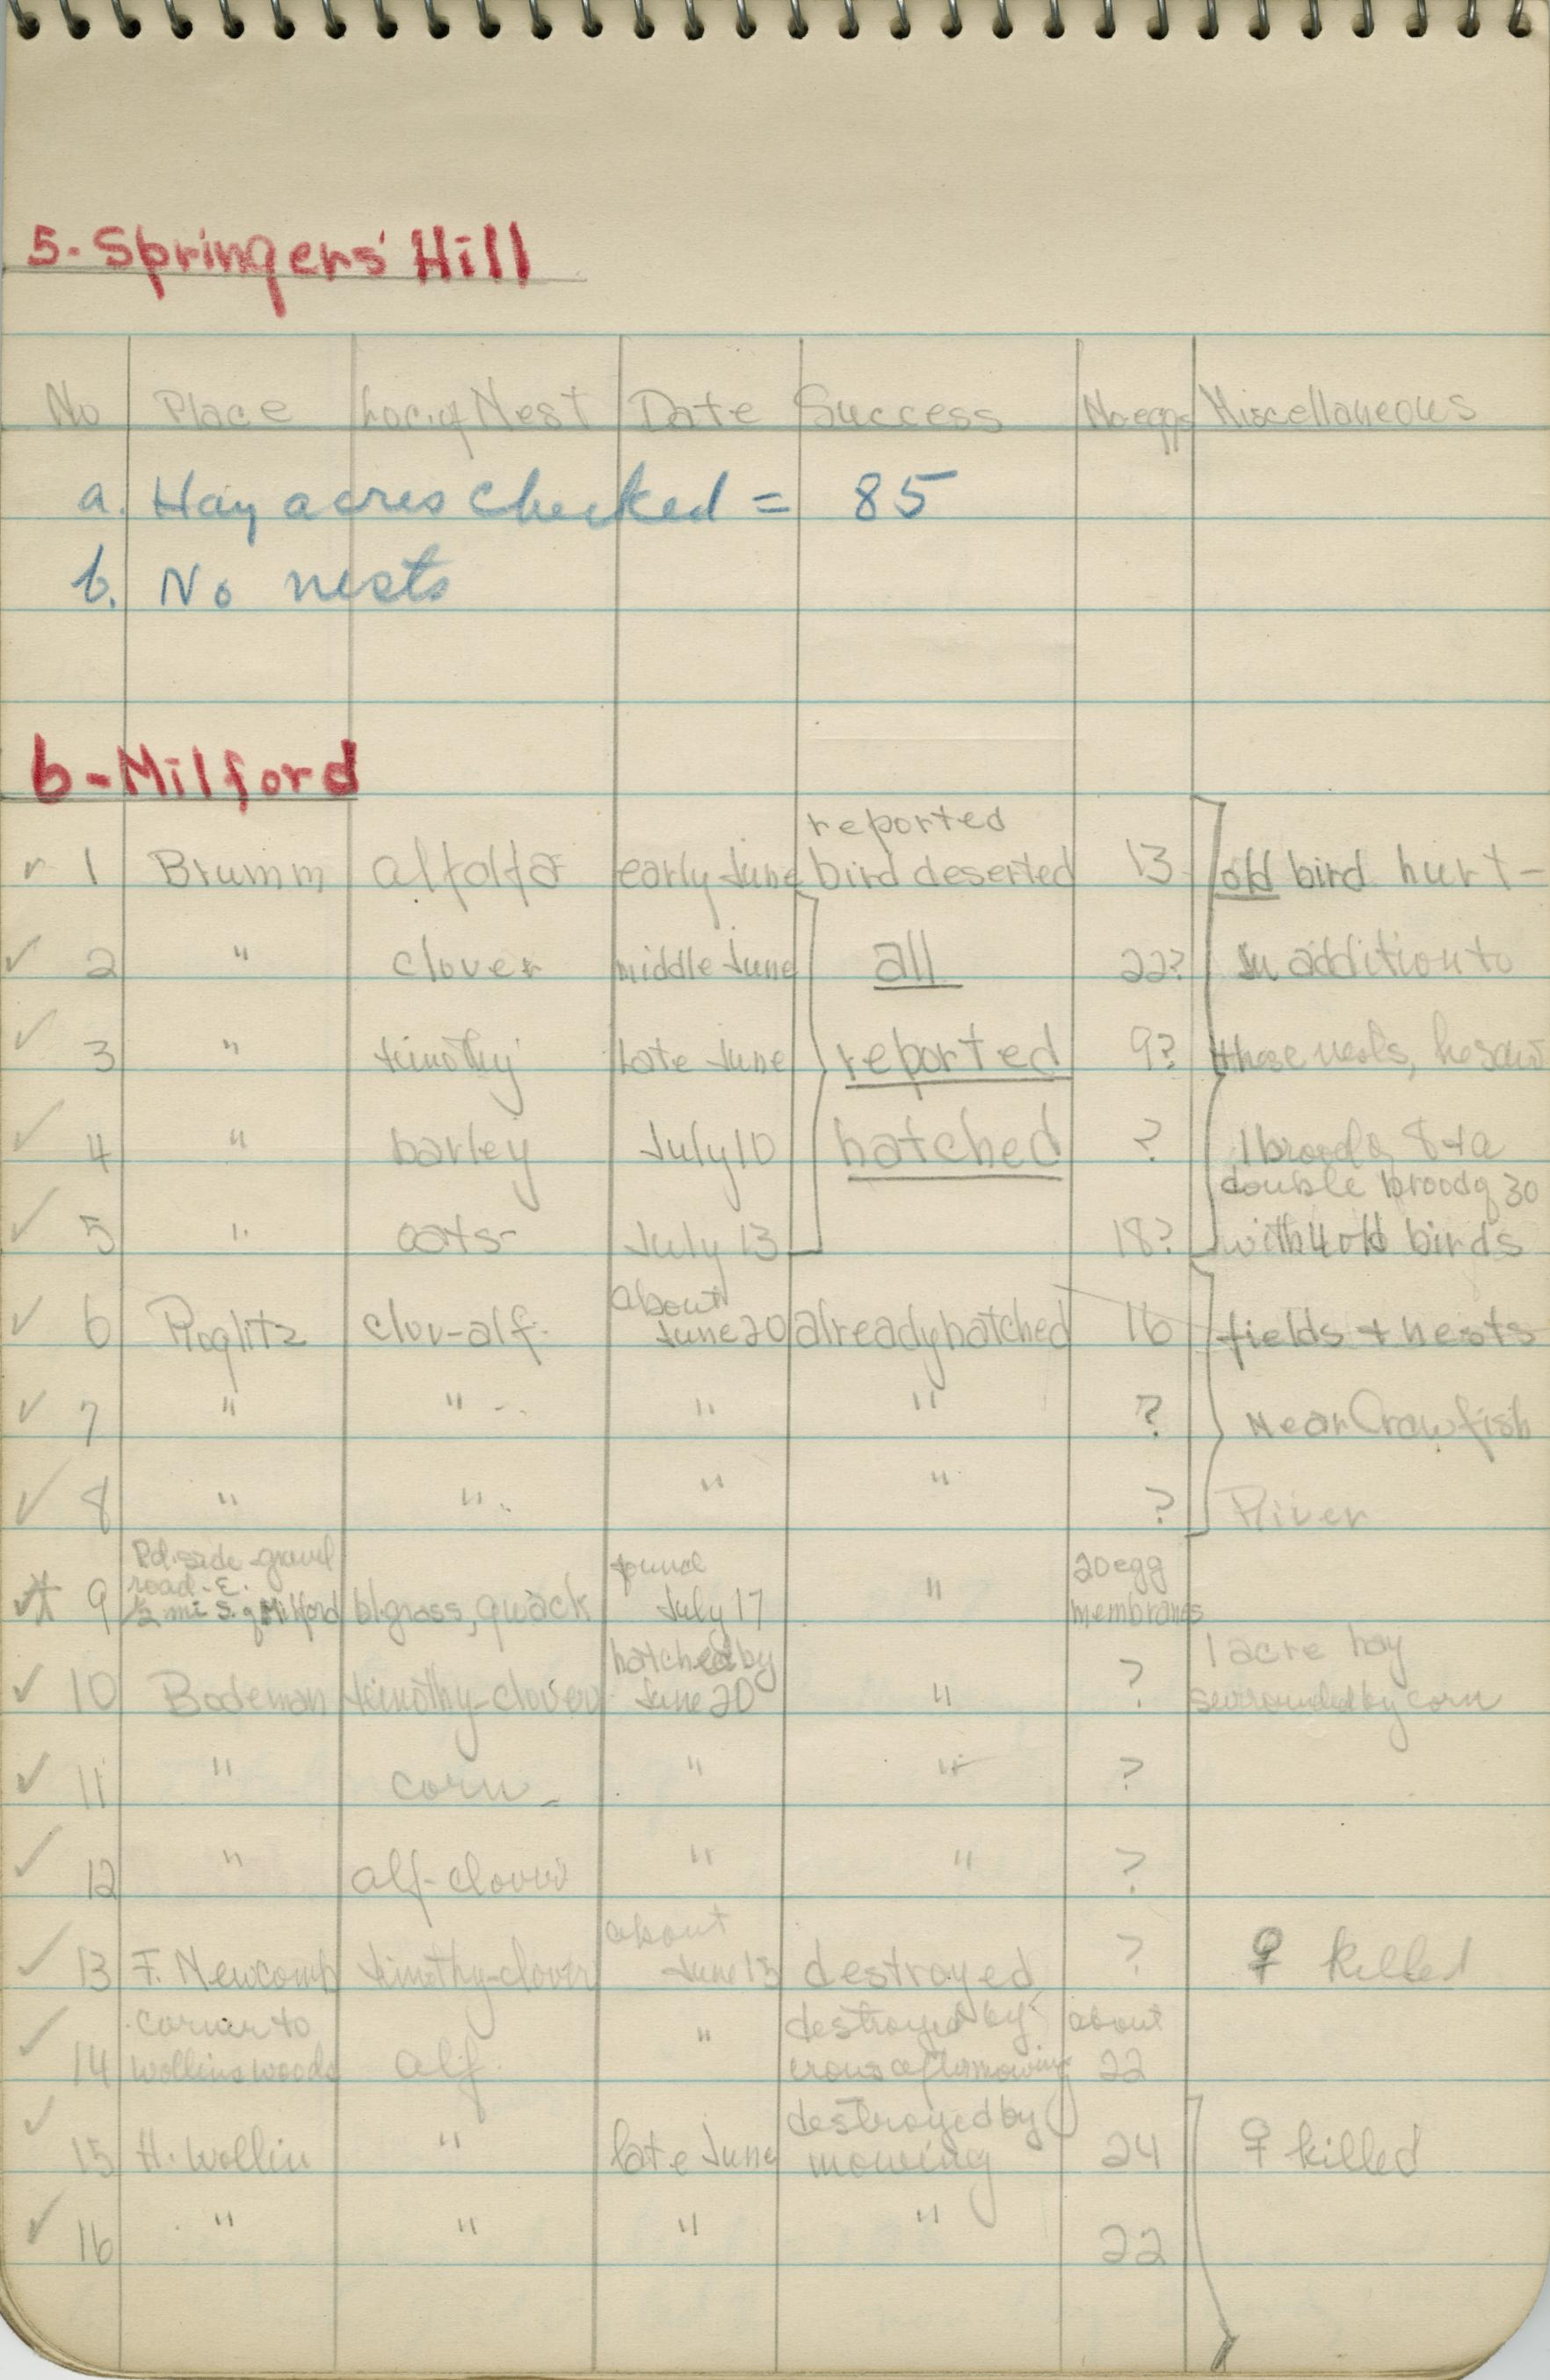 5-Springers' Hill
No Place Loc. of Nest Date Success No eggs Miscellaneous
a. Hay acres checked = 85
b. No nests
6-Milford
reported
✓ 1 Brumm alfalfa early June bird deserted 13 old bird hurt-
✓ 2 " clover middle June all 22? In addition to
✓ 3 " timothy late June reported 9? these nests, he saw
✓ 4 " barley July 10 hatched ? 1 brood of 8 + a
double brood of 30
✓ 5 " oats July 13 18? with 4 old birds
about
✓ 6 clov-alf. June 20 already hatched 16 fields + nests
✓ 7 " " " " ? Near Crawfish
✓ 8 " " " " ? River
Rd. side-gravel found 20 egg
road-E.
✓* 9 1/2 mi S. of Milford bl. grass, quack July 17 " membranes
hatched by 1 acre hay
✓ 10 Bodeman timothy-clover June 20 " ? surrounded by corn
✓ 11 " corn " " ?
✓ 12 " alf-clover " " ?
about
✓ 13 F. Newcomb timothy-clover June 15 destroyed ? ♀ killed
corner to destroyed by about
✓ 14 Wollins woods alf. " crows after mowing 22
destroyed by
✓ 15 H. Wollin " late June mowing 24 ♀ killed
✓ 16 " " " " 22